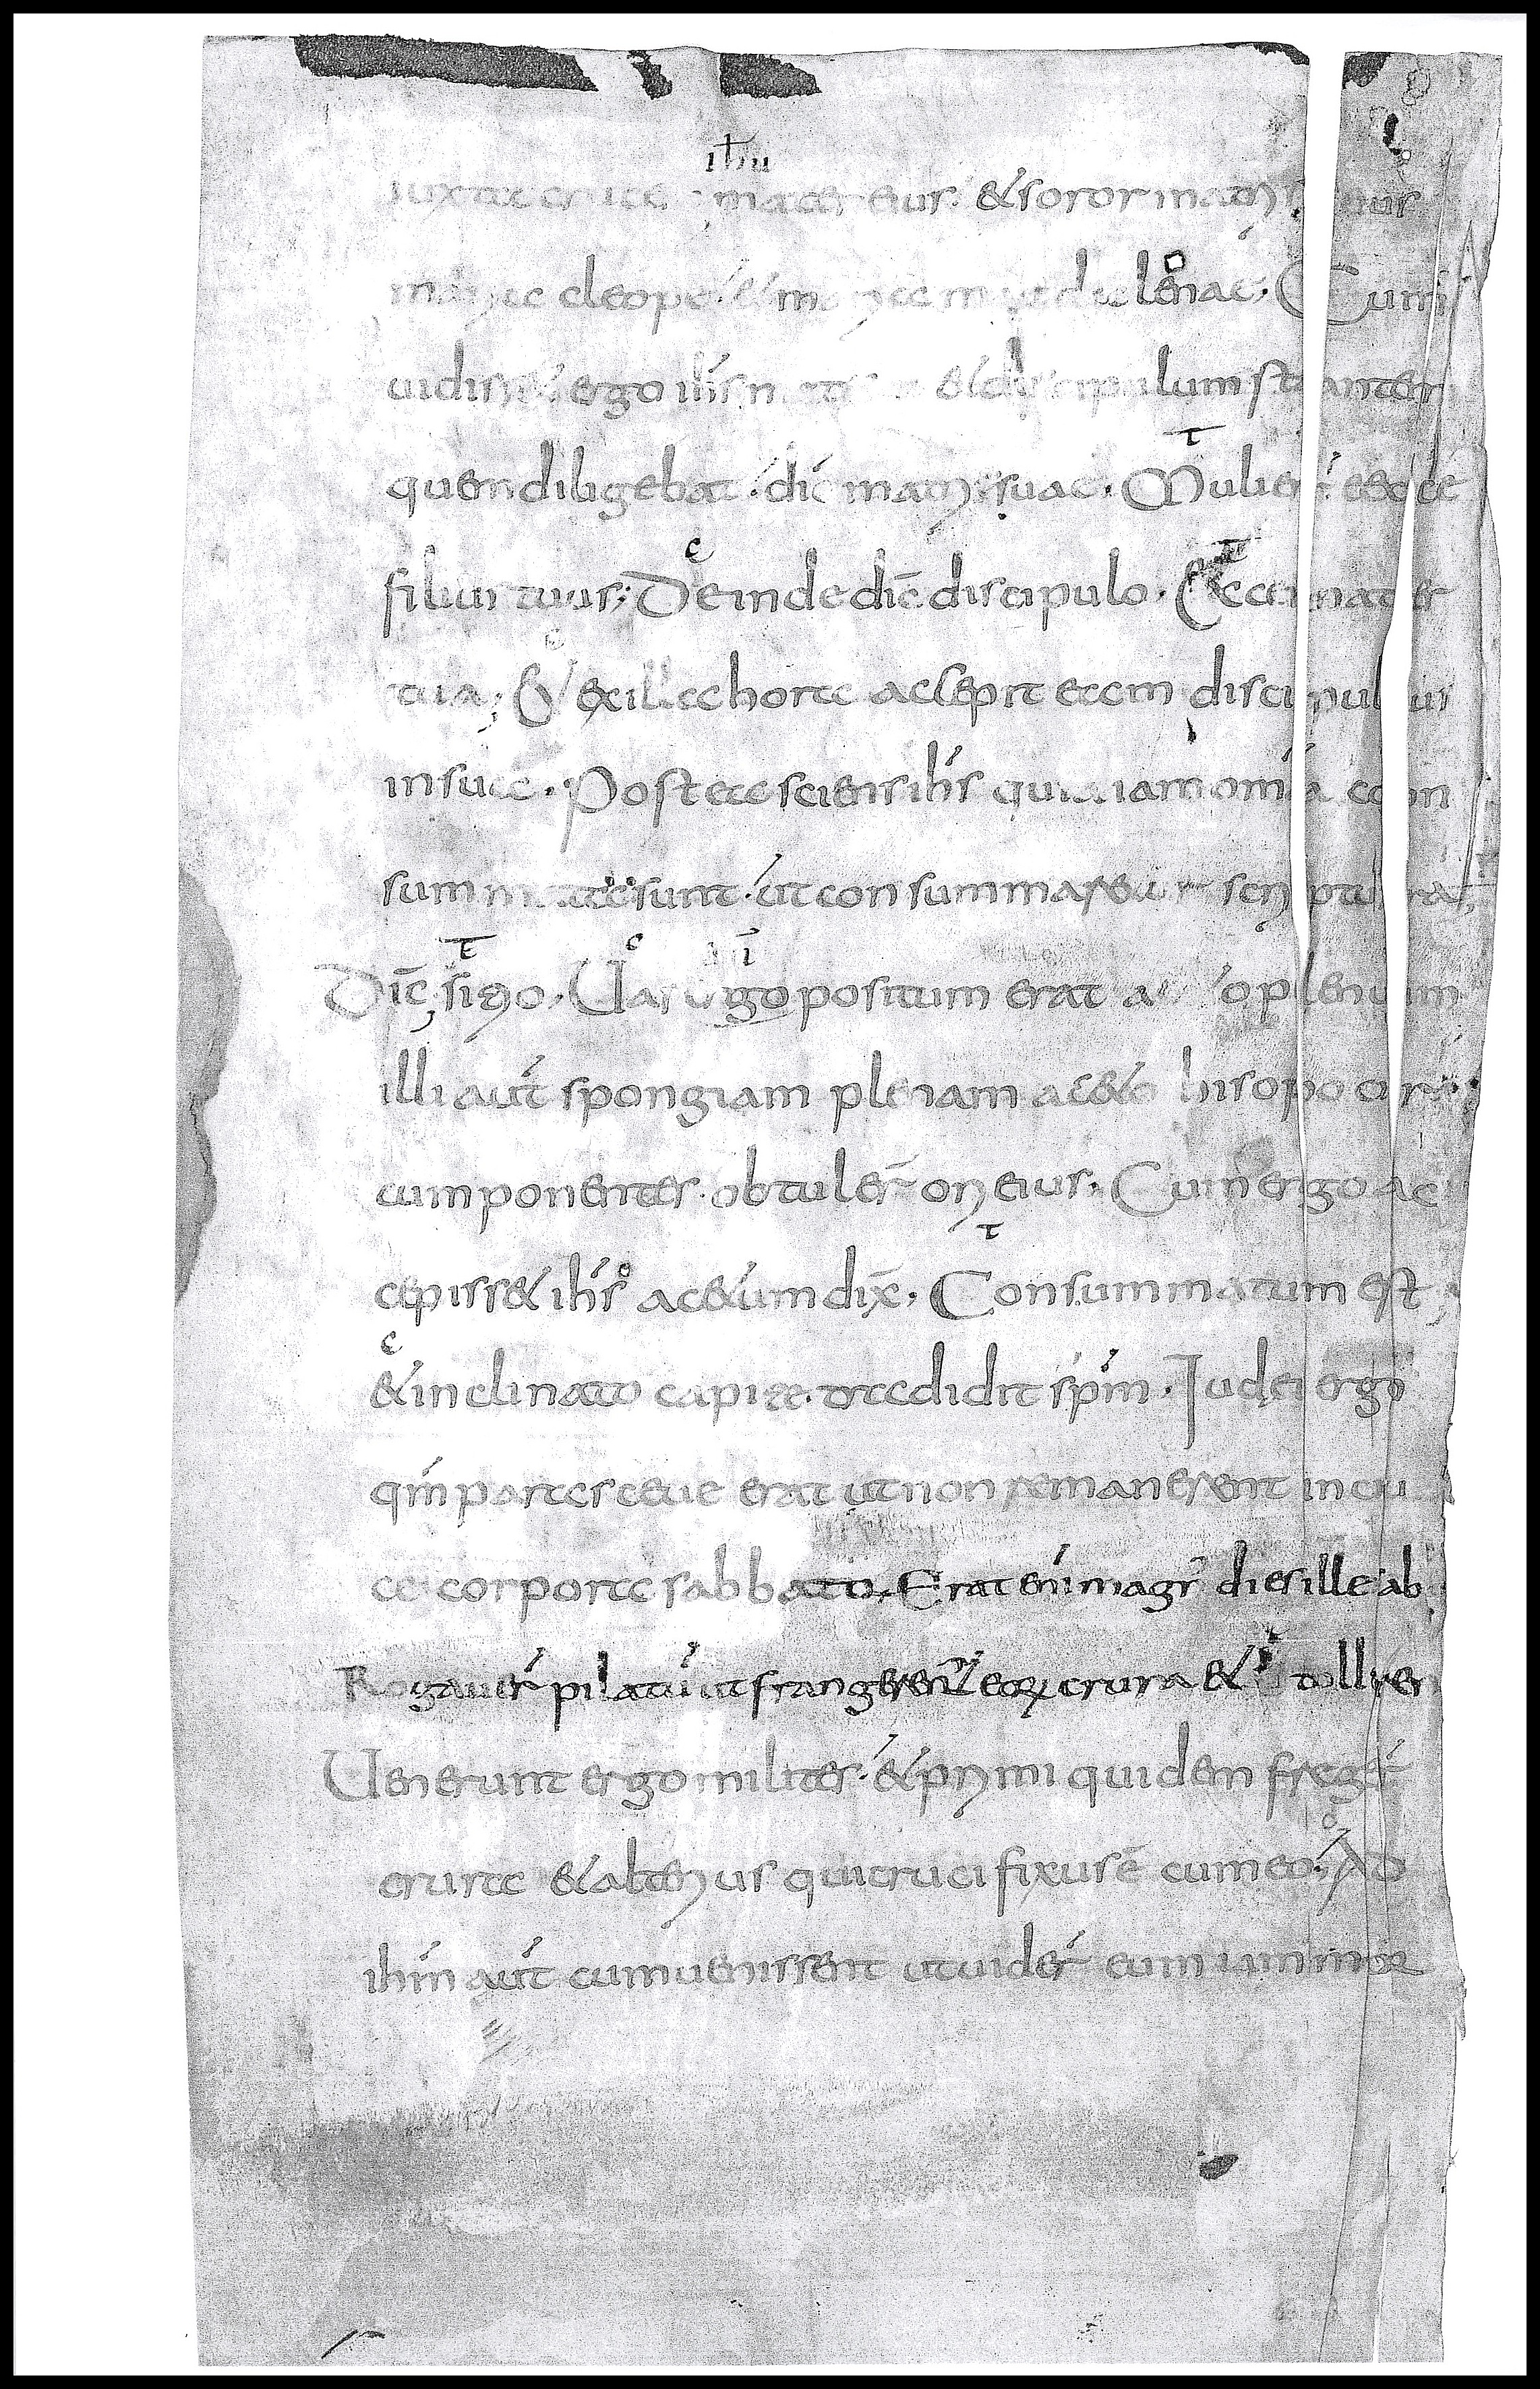 ihu
iuxta cruce mater eius· & soror matris eius
maria cleope· & maria magdalenae· Cum
uidiss& ergo ihs matrem & discipulum stantem
quem diligebat· dic̄ matri suae· Mulier ecce
filius tuus; Deinde dic̄ discipulo· Ecce mater
tua; & ex illa hora accepit eam discipulus
in sua· Postea sciens ihs quia iam omia con
summata sunt· ut consummaretur scriptura;
Dic̄ sitio· Uas ergo positum erat aceto plenum
illi aut spongiam plenam ac&o hisopo cir
cumponentes· obtuler ori eius· Cum ergo ac
cepiss& ihs ac&um dix̄· Consummatum est;
& inclinato capite· tradidit spm· Iudei ergo
qm parasceue erat ut non remanerent in cru
ce corpora sabbato· Erat eni magn dies ille sab
Rogauer pilatu ut frangerent eoꝝ crura & tollerer
Uenerunt ergo milites· & primi quidem freger
crura & alterius qui crucifixus ē cum eo· Ad
ihm aut cum uenissent ut uider eum iam mor